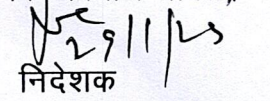 29/1/25
निदेशक